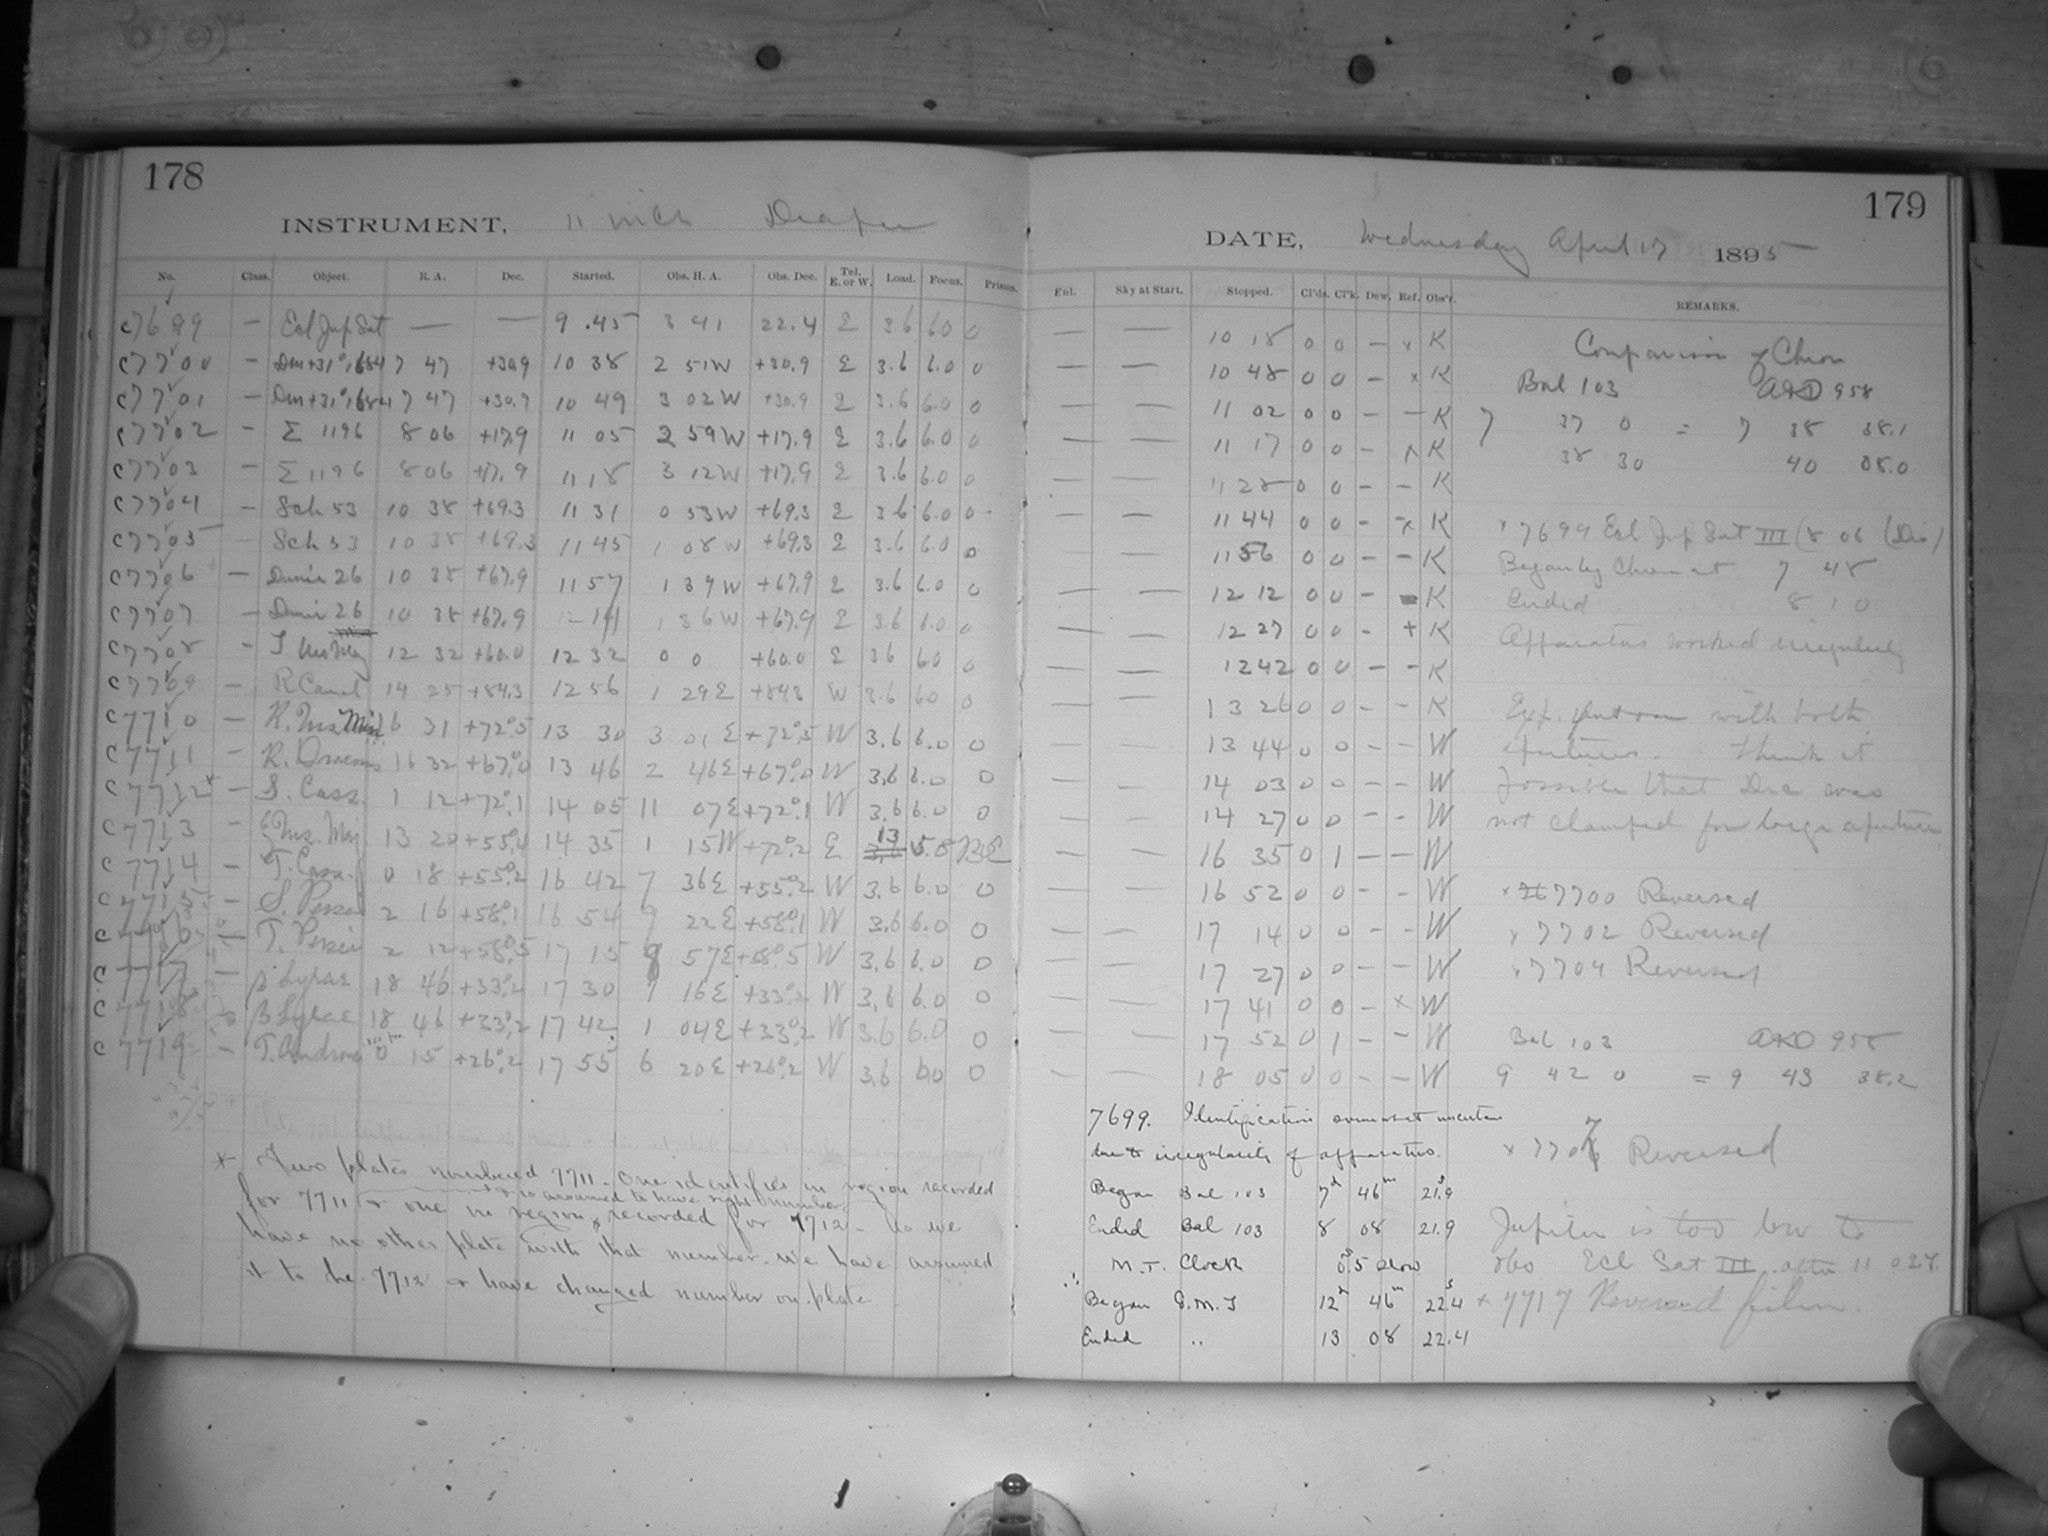 178
INSTRUMENT, 11 inch Draper
No. Class. Object. R. A. Dec. Started. Obs. H. A. Obs. Dec. Tel. E. or W. Load. Focus. Prisms.
C7699 — Ecl Jup Sat — — 9 45 3 41 22.4 E 3.6 6.0 0
C7700 — Dm+31°,1684 7 47 +30.9 10 38 2 51W +30.9 E 3.6 6.0 0
C7701 — Dm+31°,1684 7 47 +30.9 10 49 3 02W +30.9 E 3.6 6.0 0
C7702 — Σ 1196 8 06 +17.9 11 05 2 59W +17.9 E 3.6 6.0 0
C7703 — Σ 1196 8 06 +17.9 11 18 3 12W +17.9 E 3.6 6.0 0
C7704 — Sch 53 10 38 +69.3 11 31 0 53W +69.3 E 3.6 6.0 0
C7705 — Sch 53 10 38 +69.3 11 45 1 08W +69.3 E 3.6 6.0 0
C7706 — Dunér 26 10 38 +67.9 11 57 1 39W +67.9 E 3.6 6.0 0
C7707 — Dunér 26 10 38 +67.9 12 14 1 36W +67.9 E 3.6 6.0 0
C7708 — T Urs Maj 12 32 +60.0 12 32 0 0 +60.0 E 3.6 6.0 0
C7709 — R Camel 14 25 +84.3 12 56 1 29E +84.3 W 3.6 6.0 0
C7710 — R. Urs. Min. 16 31 +72°.5 13 30 3 01E +72°.5 W 3.6 6.0 0
C7711 — R. Draconis 16 32 +67°.0 13 46 2 46E +67°.0 W 3.6 6.0 0
C7712* — S. Cass. 1 12 +72°.1 14 05 11 07E +72°.1 W 3.6 6.0 0
C7713 — ζ Urs. Maj. 13 20 +55°.4 14 35 1 15W +72°.2 E 13 5.8
C7714 — T. Cass. 0 18 +55°.2 16 42 7 36E +55°.2 W 3.6 6.0 0
C7715 — S. Persei 2 16 +58°.1 16 54 9 22E +58°.1 W 3.6 6.0 0
C7716 — T. Persei 2 12 +58°.5 17 15 8 57E +58°.5 W 3.6 6.0 0
C7717 — β Lyrae 18 46 +33°.2 17 30 1 16E +33°.2 W 3.6 6.0 0
C7718 — β Lyrae 18 46 +33°.2 17 42 1 04E +33°.2 W 3.6 6.0 0
C7719 — T. Androm 0 15 +26°.2 17 55 6 20E +26°.2 W 3.6 6.0 0
* Two plates numbered 7711. One identifies in region recorded
for 7711 & is assumed to have right number
& one in region recorded for 7712 — As we
have no other plate with that number we have assumed
it to be 7712 & have changed number on plate
179
DATE, Wednesday April 17 1895
Enl. Sky at Start. Stopped. Cl'ds. Cl'k. Dew. Ref. Obs'r. REMARKS.
— — 10 18 0 0 — x K
— — 10 48 0 0 — x K
— — 11 02 0 0 — — K
— — 11 17 0 0 — x K
— — 11 28 0 0 — — K
— — 11 44 0 0 — x K
— — 11 56 0 0 — — K
— — 12 12 0 0 — K
— — 12 27 0 0 — + K
— — 12 42 0 0 — — K
— — 13 26 0 0 — — K
— — 13 44 0 0 — — W
— — 14 03 0 0 — — W
— — 14 27 0 0 — — W
— — 16 35 0 1 — — W
— — 16 52 0 0 — — W
— — 17 14 0 0 — — W
— — 17 27 0 0 — — W
— — 17 41 0 0 — x W
— — 17 52 0 1 — — W
— — 18 05 0 0 — — W
Comparison of Chron
Bal 103 A&D 958
7 37 0 = 7 38 38.1
38 30 40 08.0
x 7699 Ecl Jup Sat III (8 06 (Dis)
Began by Chron at 7 48
Ended 8 10
Apparatus worked irregularly
Exp. put on with both
apertures. Think it
possible that Dec was
not clamped for large aperture
x 7700 Reversed
x 7702 Reversed
x 7704 Reversed
Bal 103 A&D 958
9 42 0 = 9 43 38.2
x 7707 Reversed
Jupiter is too low to
obs Ecl Sat III after 11 02
x 7717 Reversed film.
7699. Identification somewhat uncertain
due to irregularity of apparatus.
Began Bal 103 7h 46m 21s.9
Ended Bal 103 8 08 21.9
M.T. Clock 0s.5 slow
∴ Began G.M.T 12h 46m 22s.4
Ended " 13 08 22.4